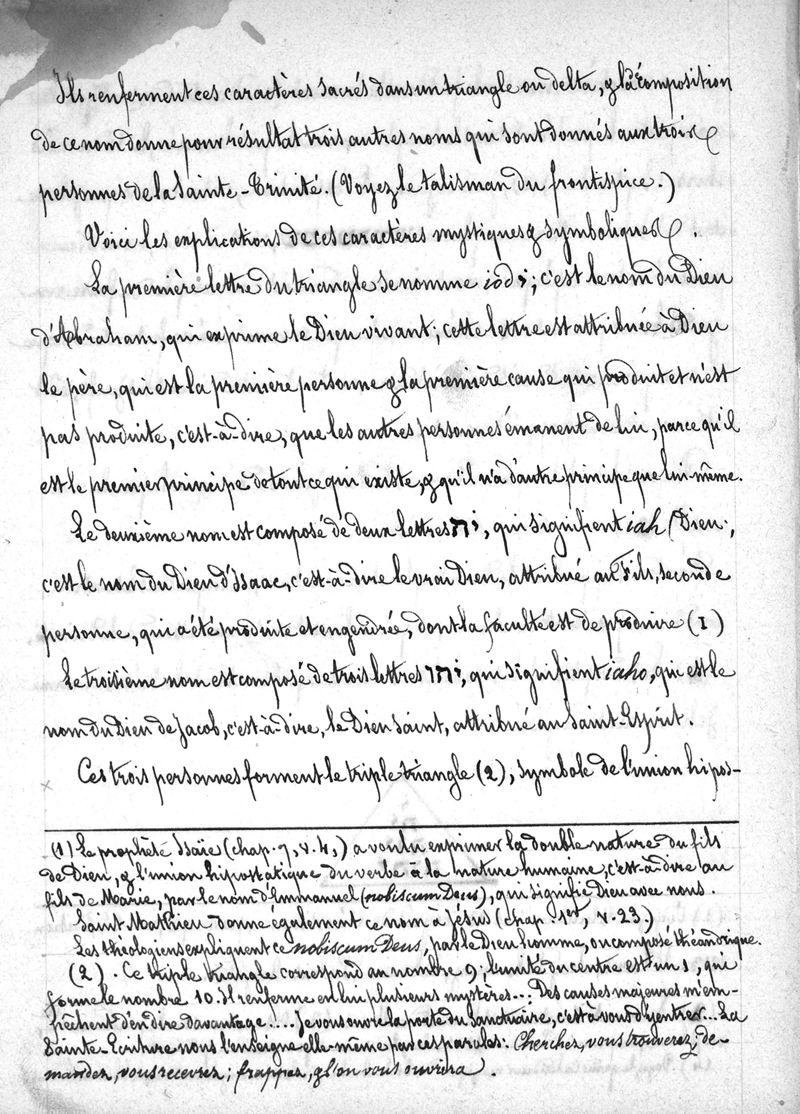 Ils renferment ces caractères sacrés dans un triangle ou delta, & la décomposition
de ce nom donne pour résultat trois autres noms qui sont donnés aux trois
personnes de la Sainte-Trinité. (Voyez le talisman du frontispice.)
Voici les explications de ces caractères mystiques & symboliques.
La première lettre du triangle se nomme iod י; c'est le nom du Dieu
d'Abraham, qui exprime le Dieu vivant; cette lettre est attribuée à Dieu
le père, qui est la première personne & la première cause qui produit et n'est
pas produite, c'est-à-dire, que les autres personnes émanent de lui, parce qu'il
est le premier principe de tout ce qui existe, & qu'il n'a d'autre principe que lui-même.
Le deuxième nom est composé de deux lettres יה, qui signifient iah (Dieu.,
c'est le nom du Dieu d'Isaac, c'est-à-dire le vrai Dieu, attribué au Fils, seconde
personne, qui a été produite et engendrée, dont la faculté est de produire (1)
Le troisième nom est composé de trois lettres יהו, qui signifient iaho, qui est le
nom du Dieu de Jacob, c'est-à-dire, le Dieu Saint, attribué au Saint-Esprit.
Ces trois personnes forment le triple triangle (2), symbole de l'union hipos-
(1) Le prophète Isaïe (chap. 7, v. 14,) a voulu exprimer la double nature du fils
de Dieu, & l'union hipostatique du verbe à la nature humaine, c'est-à-dire au
fils de Marie, par le nom d'Emmanuel (nobiscum Deus), qui signifie Dieu avec nous.
Saint Mathieu donne également ce nom à Jésus (chap. 1er, v. 23.)
Les théologiens expliquent ce nobiscum Deus, par le Dieu homme, ou composé théandrique.
(2). Ce triple triangle correspond au nombre 9; l'unité du centre est un 1, qui
forme le nombre 10. Il renferme en lui plusieurs mystères... Des causes majeures m'em-
pêchent d'en dire davantage!.... Je vous ouvre la porte du Sanctuaire, c'est à vous d'y entrer... La
Sainte-Ecriture nous l'enseigne elle-même par ces paroles: Cherchez, vous trouverez; de-
mandez, vous recevrez; frappez, & l'on vous ouvrira.